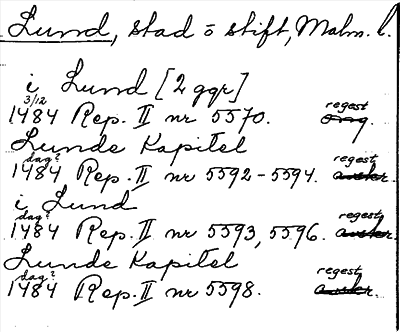 Lund, stad o stift, Malm. l.
i Lund [2 ggr]
3/12
1484 Rep. II nr 5570. regest
Lunde Kapitel
dag?
1484 Rep. II nr 5592-5594. regest
i Lund
dag?
1484 Rep. II nr 5593, 5596. regest
Lunde Kapitel
dag?
1484 Rep. II nr 5598. regest